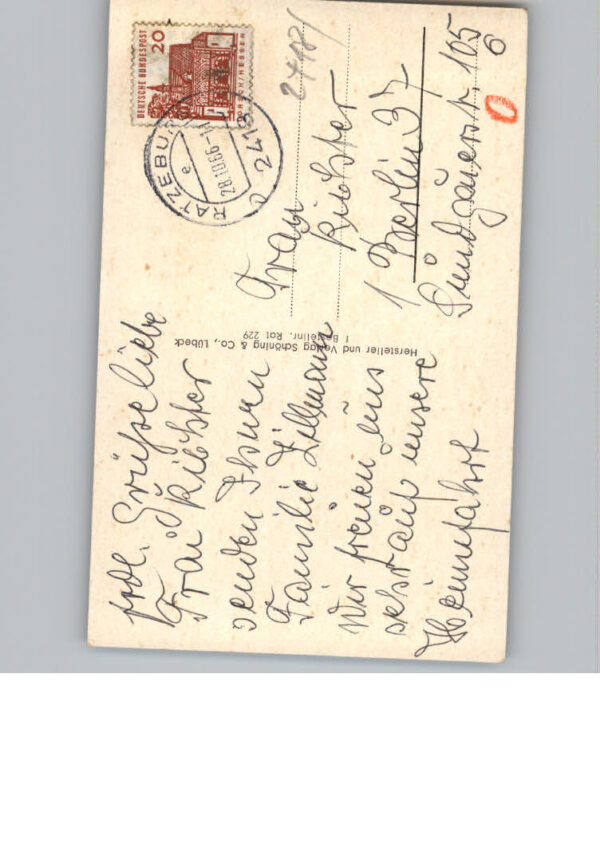 frdl. Grüße liebe
Frau Richter
senden Ihnen
Familie Zillmann
Wir freuen uns
sehr auf unsere
Heimfahrt
Hersteller und Verlag Schöning & Co., Lübeck
Bestellnr. Rat 229
DEUTSCHE BUNDESPOST
20
LORSCH/HESSEN
2413 RATZEBURG
e
28.10.66-1
2418/
Frau
Richter
1 Berlin 37
105
6
0